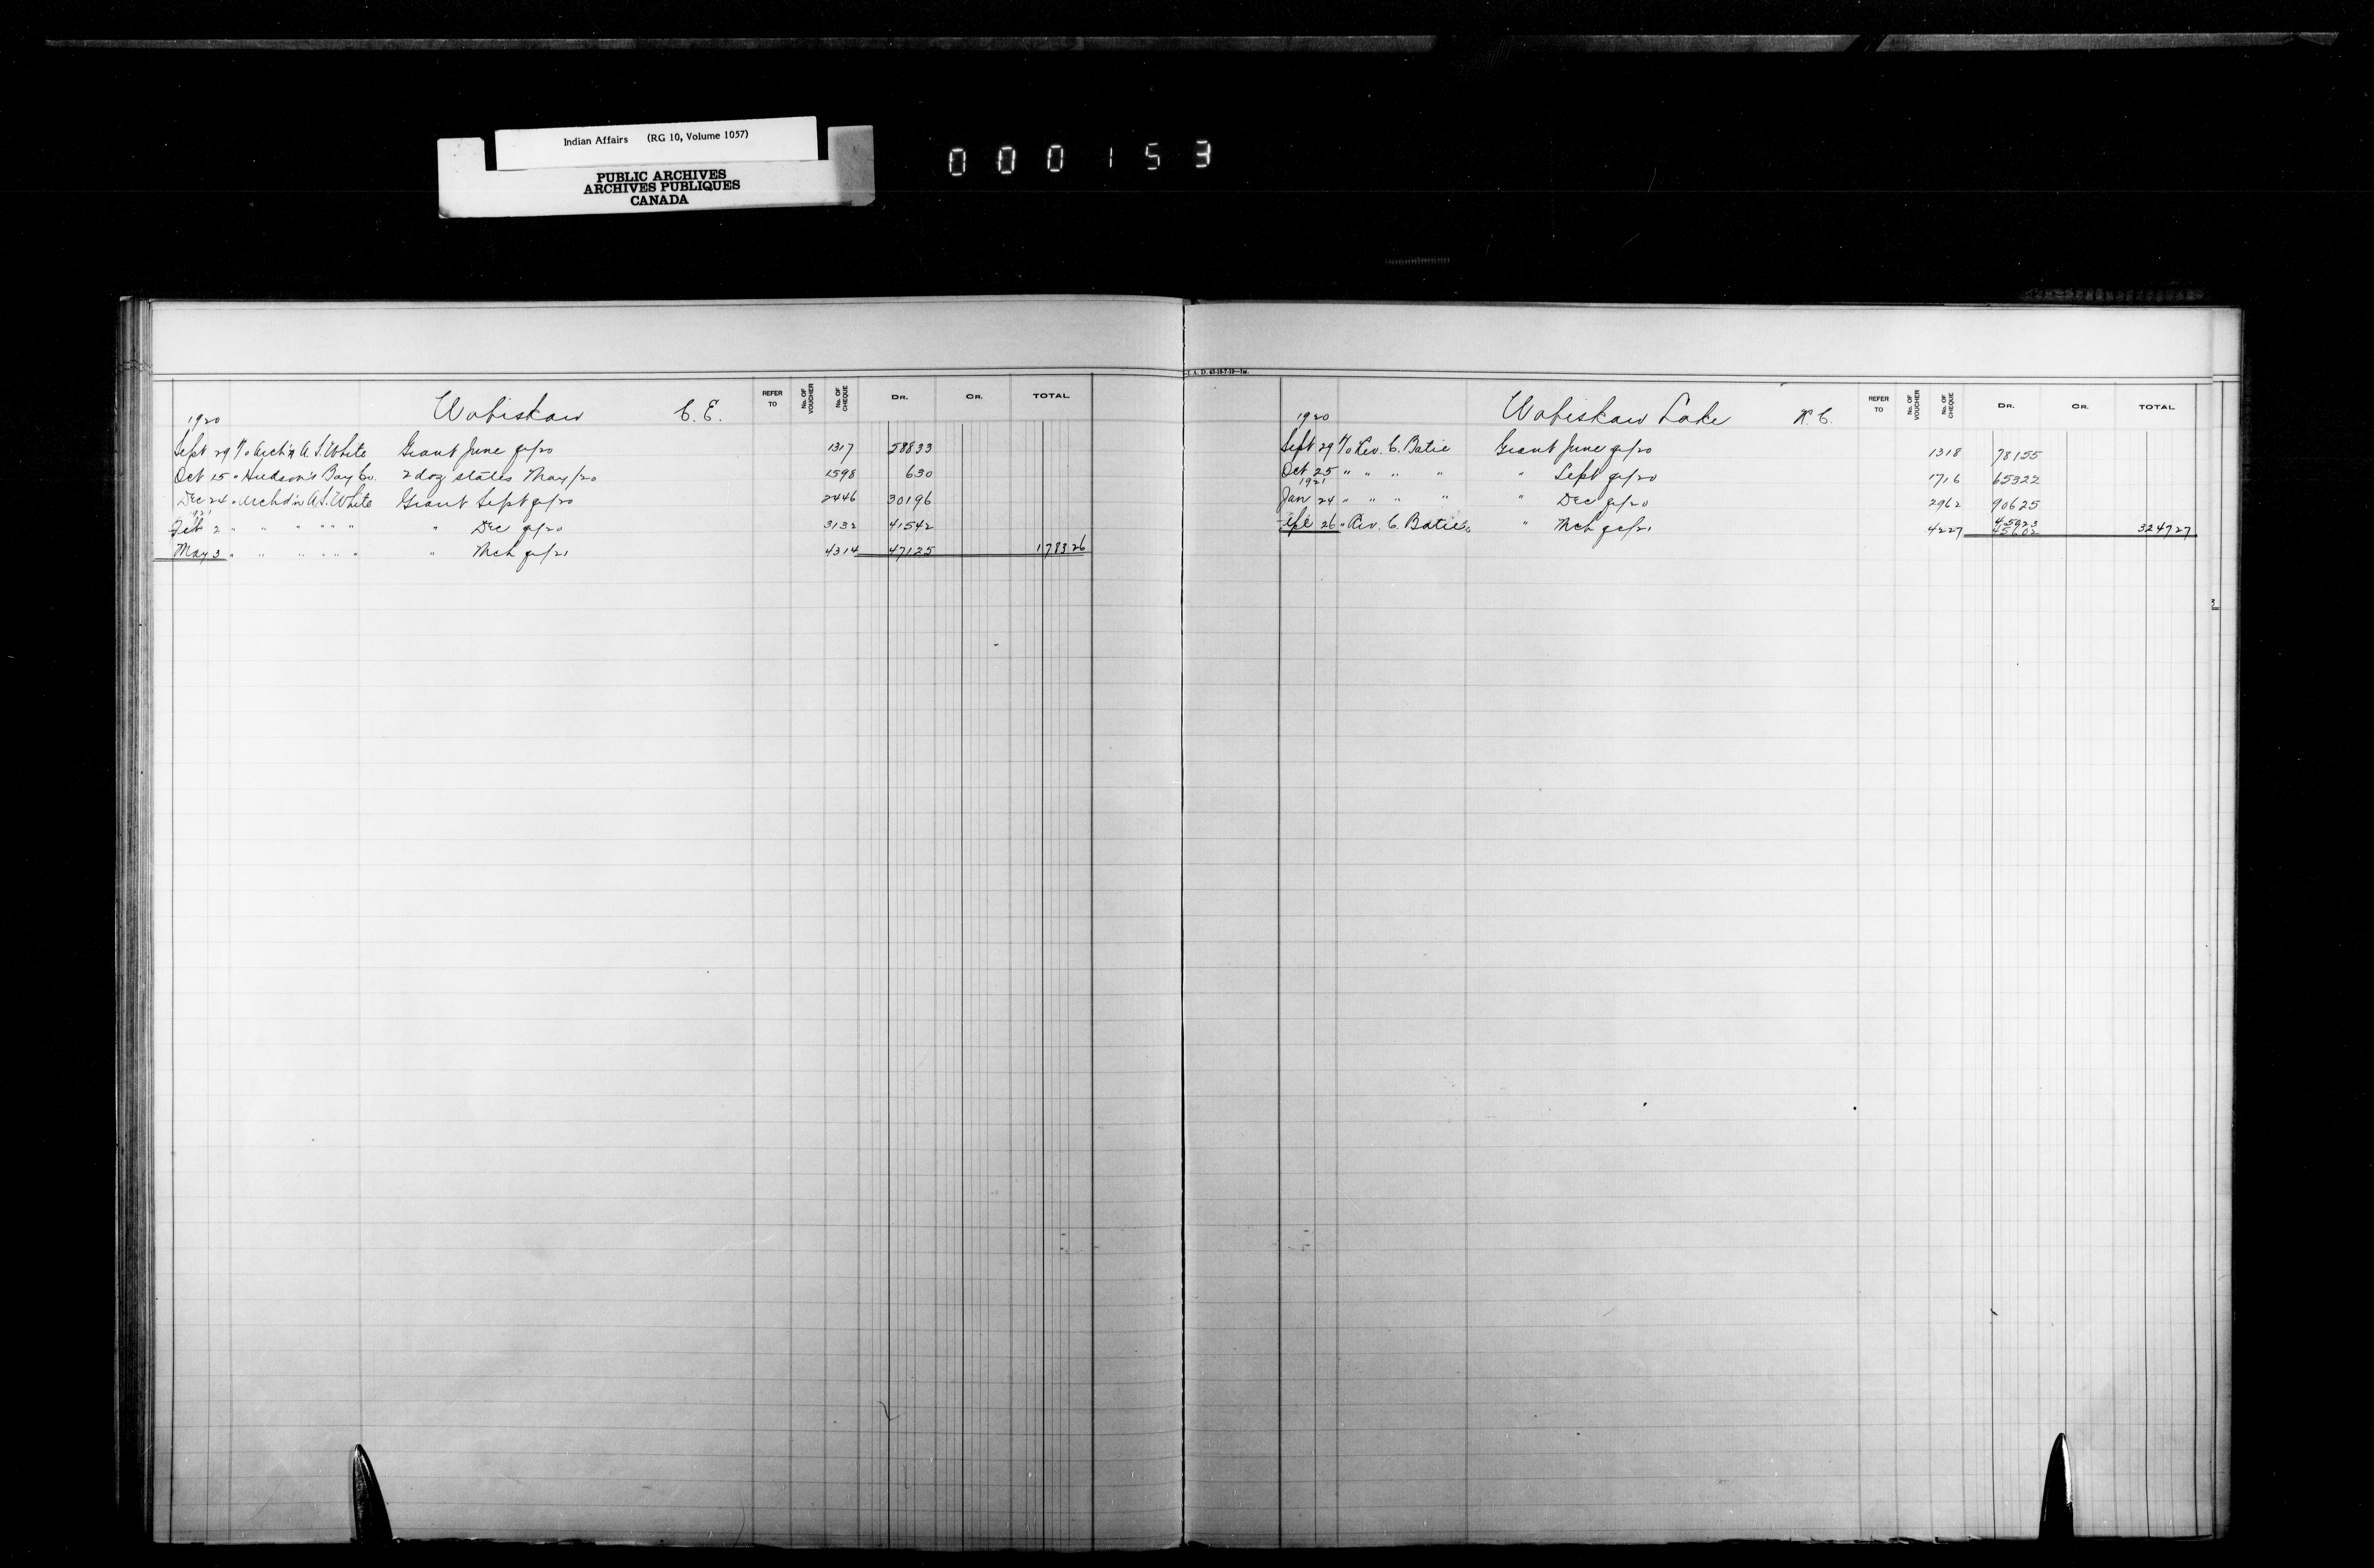 Indian Affairs (RG 10, Volume 1057)
PUBLIC ARCHIVES
ARCHIVES PUBLIQUES
CANADA
000153
1920 Wabiskaw C.E. REFER TO No. OF VOUCHER No. OF CHEQUE DR. CR. TOTAL
Sept 29 To Arch'n A.S. White Grant June qr/20 1317 58833
Oct 15 " Hudson's Bay Co. 2 doz slates May/20 1598 630
Dec 24 " Archd'n A.S. White Grant Sept qr/20 2446 30196
1921
Feb 2 " " " " " " " Dec qr/20 3132 41542
May 3 " " " " " " " Mch qr/21 4314 47125 178326
I. A. D. 43-10-7-19—1M.
1920 Wabiskaw Lake R.C. REFER TO No. OF VOUCHER No. OF CHEQUE DR. CR. TOTAL
Sept 29 To Rev. C. Batie Grant June qr/20 1318 78155
Oct 25 " " " " " Sept qr/20 1716 65322
1921
Jan 24 " " " " " Dec qr/20 2962 90625
45023
Apl 26 " Rev. C. Batie " Mch qr/21 4227 45602 324727